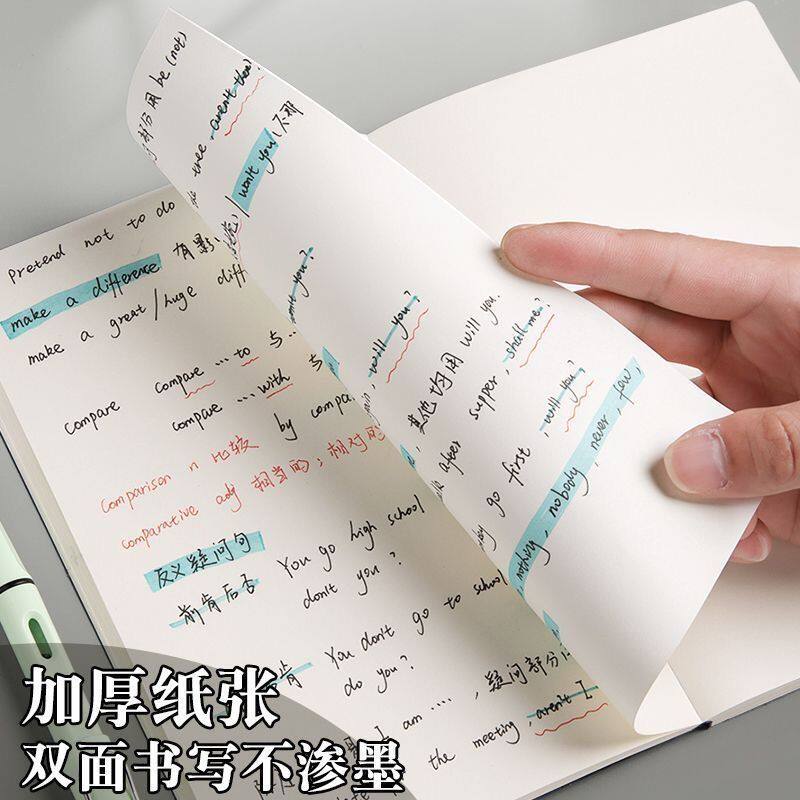 Pretend not to do
make a difference 有影
make a great/huge diff
compare compare ... to 与
compare ... with 与
by compa
comparison n 比较
comparative adj 相当的；相对的
反义疑问句 You go high school
前肯后否 don't you?
肯 You don't go to school
do you?
am ....，疑问部分
the meeting, aren't I
部分用 be (not)
tree, aren't there?
/won't you (不那
will you?
其他均用 will you.
after supper, shall me?
go first, will you?
nothing, nobody, never, few,
加厚纸张
双面书写不渗墨